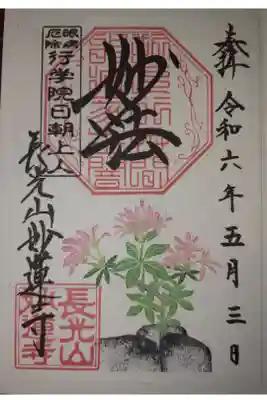 奉拝 令和六年五月三日
妙法
眼病
厄除
行学院日朝上人
長光山妙蓮寺
長光山
妙蓮寺